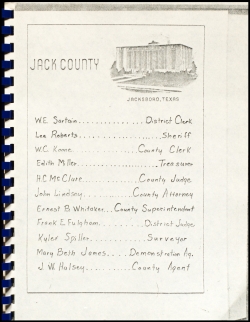 JACK COUNTY
JACKSBORO, TEXAS
W.E. Sartain...............District Clerk
Lee Roberts....................Sheriff
W.C. Kinne..............County Clerk
Edith Miller.................Treasurer
H.C. McClure............County Judge
John Lindsey..........County Attorney
Ernest B. Whitaker...County Superintendent
Frank E. Fulgham.........District Judge
Kyler Spiller...............Surveyor
Mary Beth James....Demonstration Ag.
J.W. Hulsey............County Agent